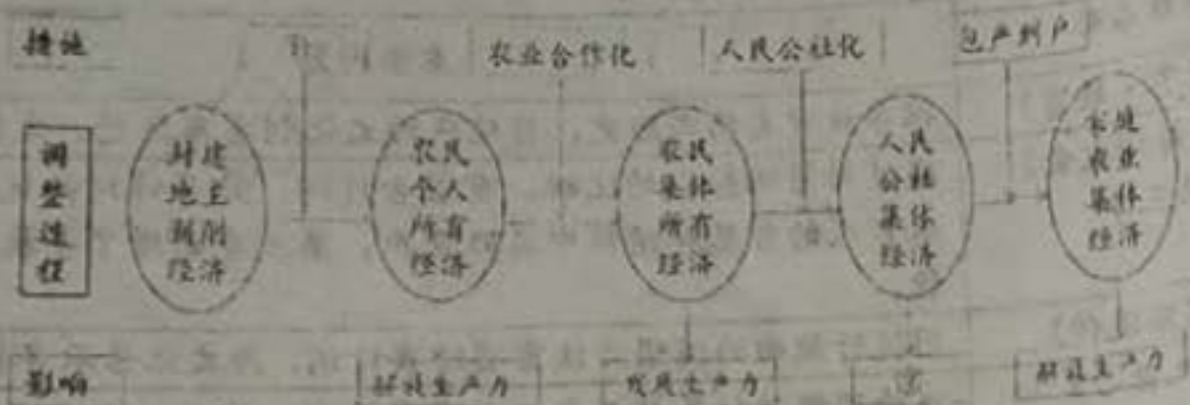 措施
农业合作化
人民公社化
包产到户
调整过程
封建
地主
剥削
经济
农民
个人
所有
经济
农民
集体
所有
经济
人民
公社
集体
经济
农业
集体
经济
影响
解放生产力
发展生产力
解放生产力